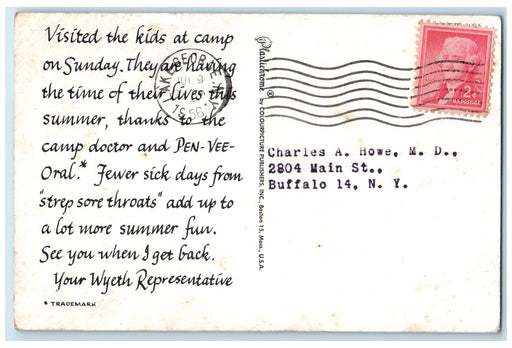 Visited the kids at camp
on Sunday. They are having
the time of their lives this
summer, thanks to the
camp doctor and PEN-VEE-
Oral.* Fewer sick days from
"strep sore throats" add up to
a lot more summer fun.
See you when I get back.
Your Wyeth Representative
* TRADEMARK
LAKE GEORGE, N.Y.
1956
Plastichrome ® by COLOURPICTURE PUBLISHERS, INC., Boston 15, Mass., U.S.A.
2¢
U.S. POSTAGE
Charles A. Howe, M. D.,
2804 Main St.,
Buffalo 14, N. Y.